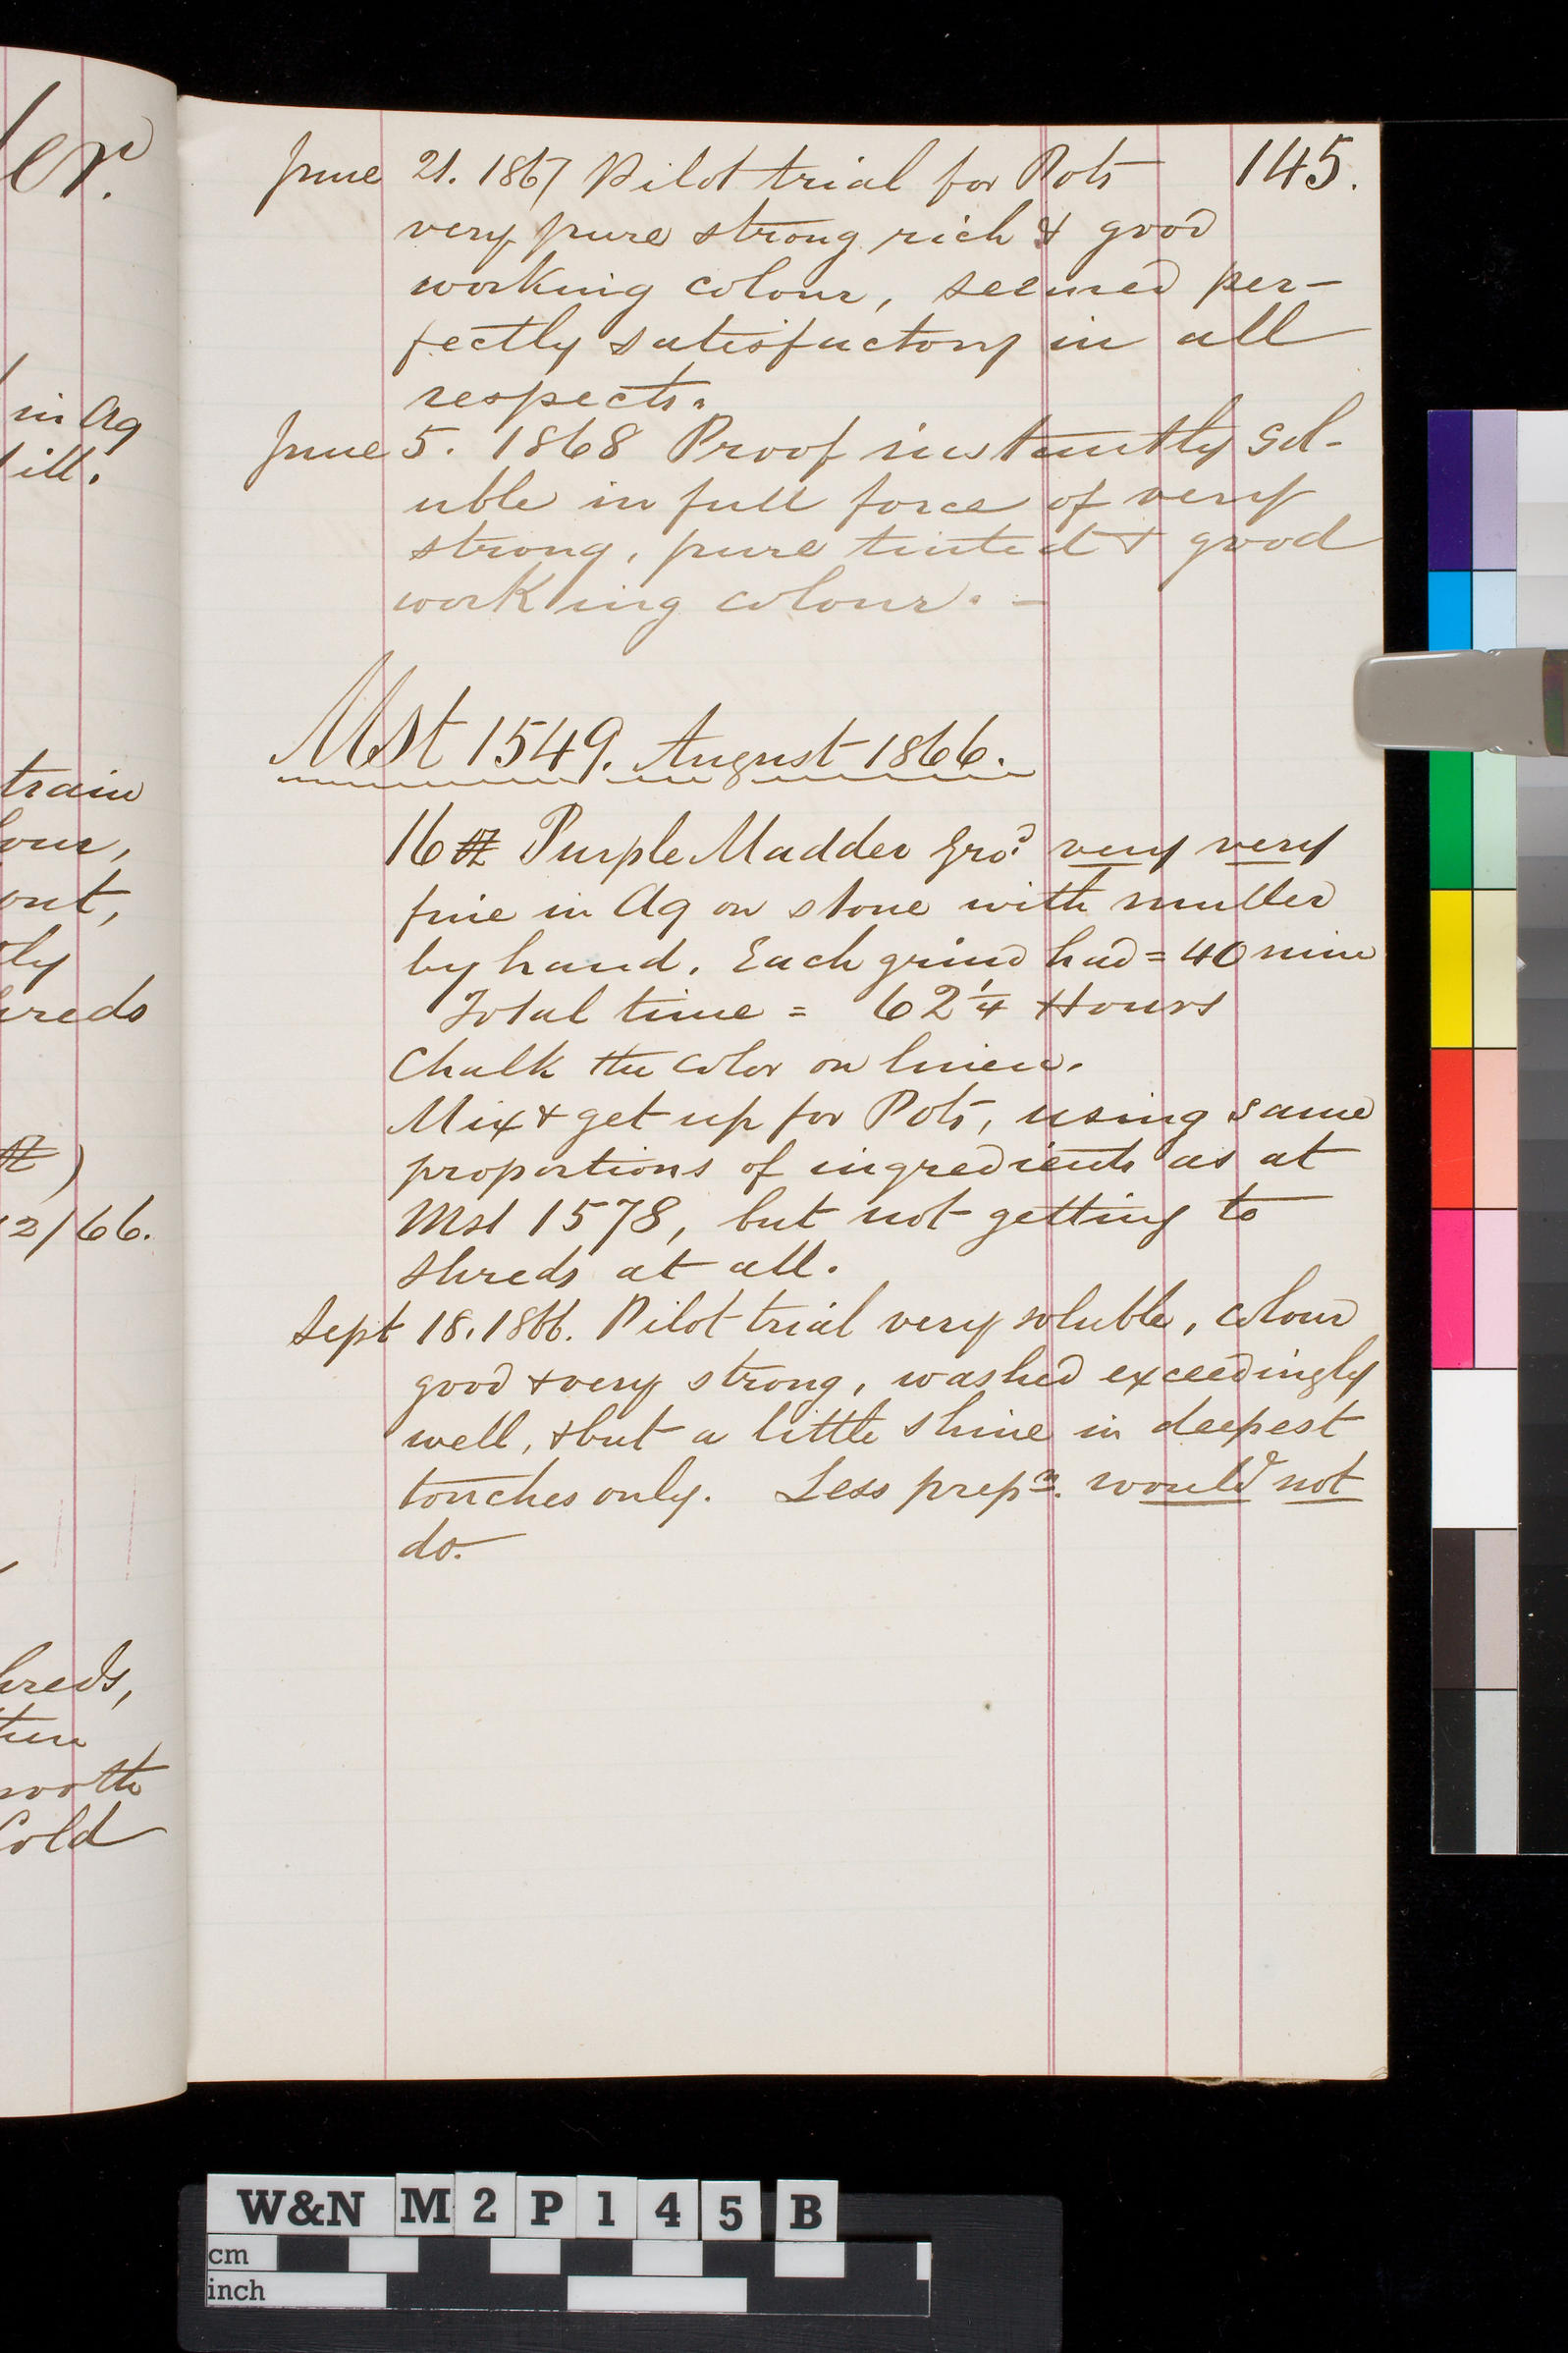 er.
in Aq
ill.
train
our,
out,
tly
hreds
℔)
12/66.
hreds,
then
smooth
Cold
145.
June 21. 1867 Pilot trial for Pots
very pure strong rich & good
working colour, seemed per-
fectly satisfactory in all
respects.
June 5. 1868 Proof instantly sol-
uble in full force of very
strong, pure tinted & good
working colour. -
Mst 1549. August 1866.
16 ℔ Purple Madder Gro.d very very
fine in Aq on stone with muller
by hand. Each grind had = 40 mins
Total time = 62 1/4 Hours
Chalk the color on linen.
Mix & get up for Pots, using same
proportions of ingredients as at
Mst 1578, but not getting to
shreds at all.
Sept 18. 1866. Pilot trial very soluble, colour
good & very strong, washed exceedingly
well, & but a little shine in deepest
touches only. Less prepn. would not
do.
W&N M2P145B
cm
inch